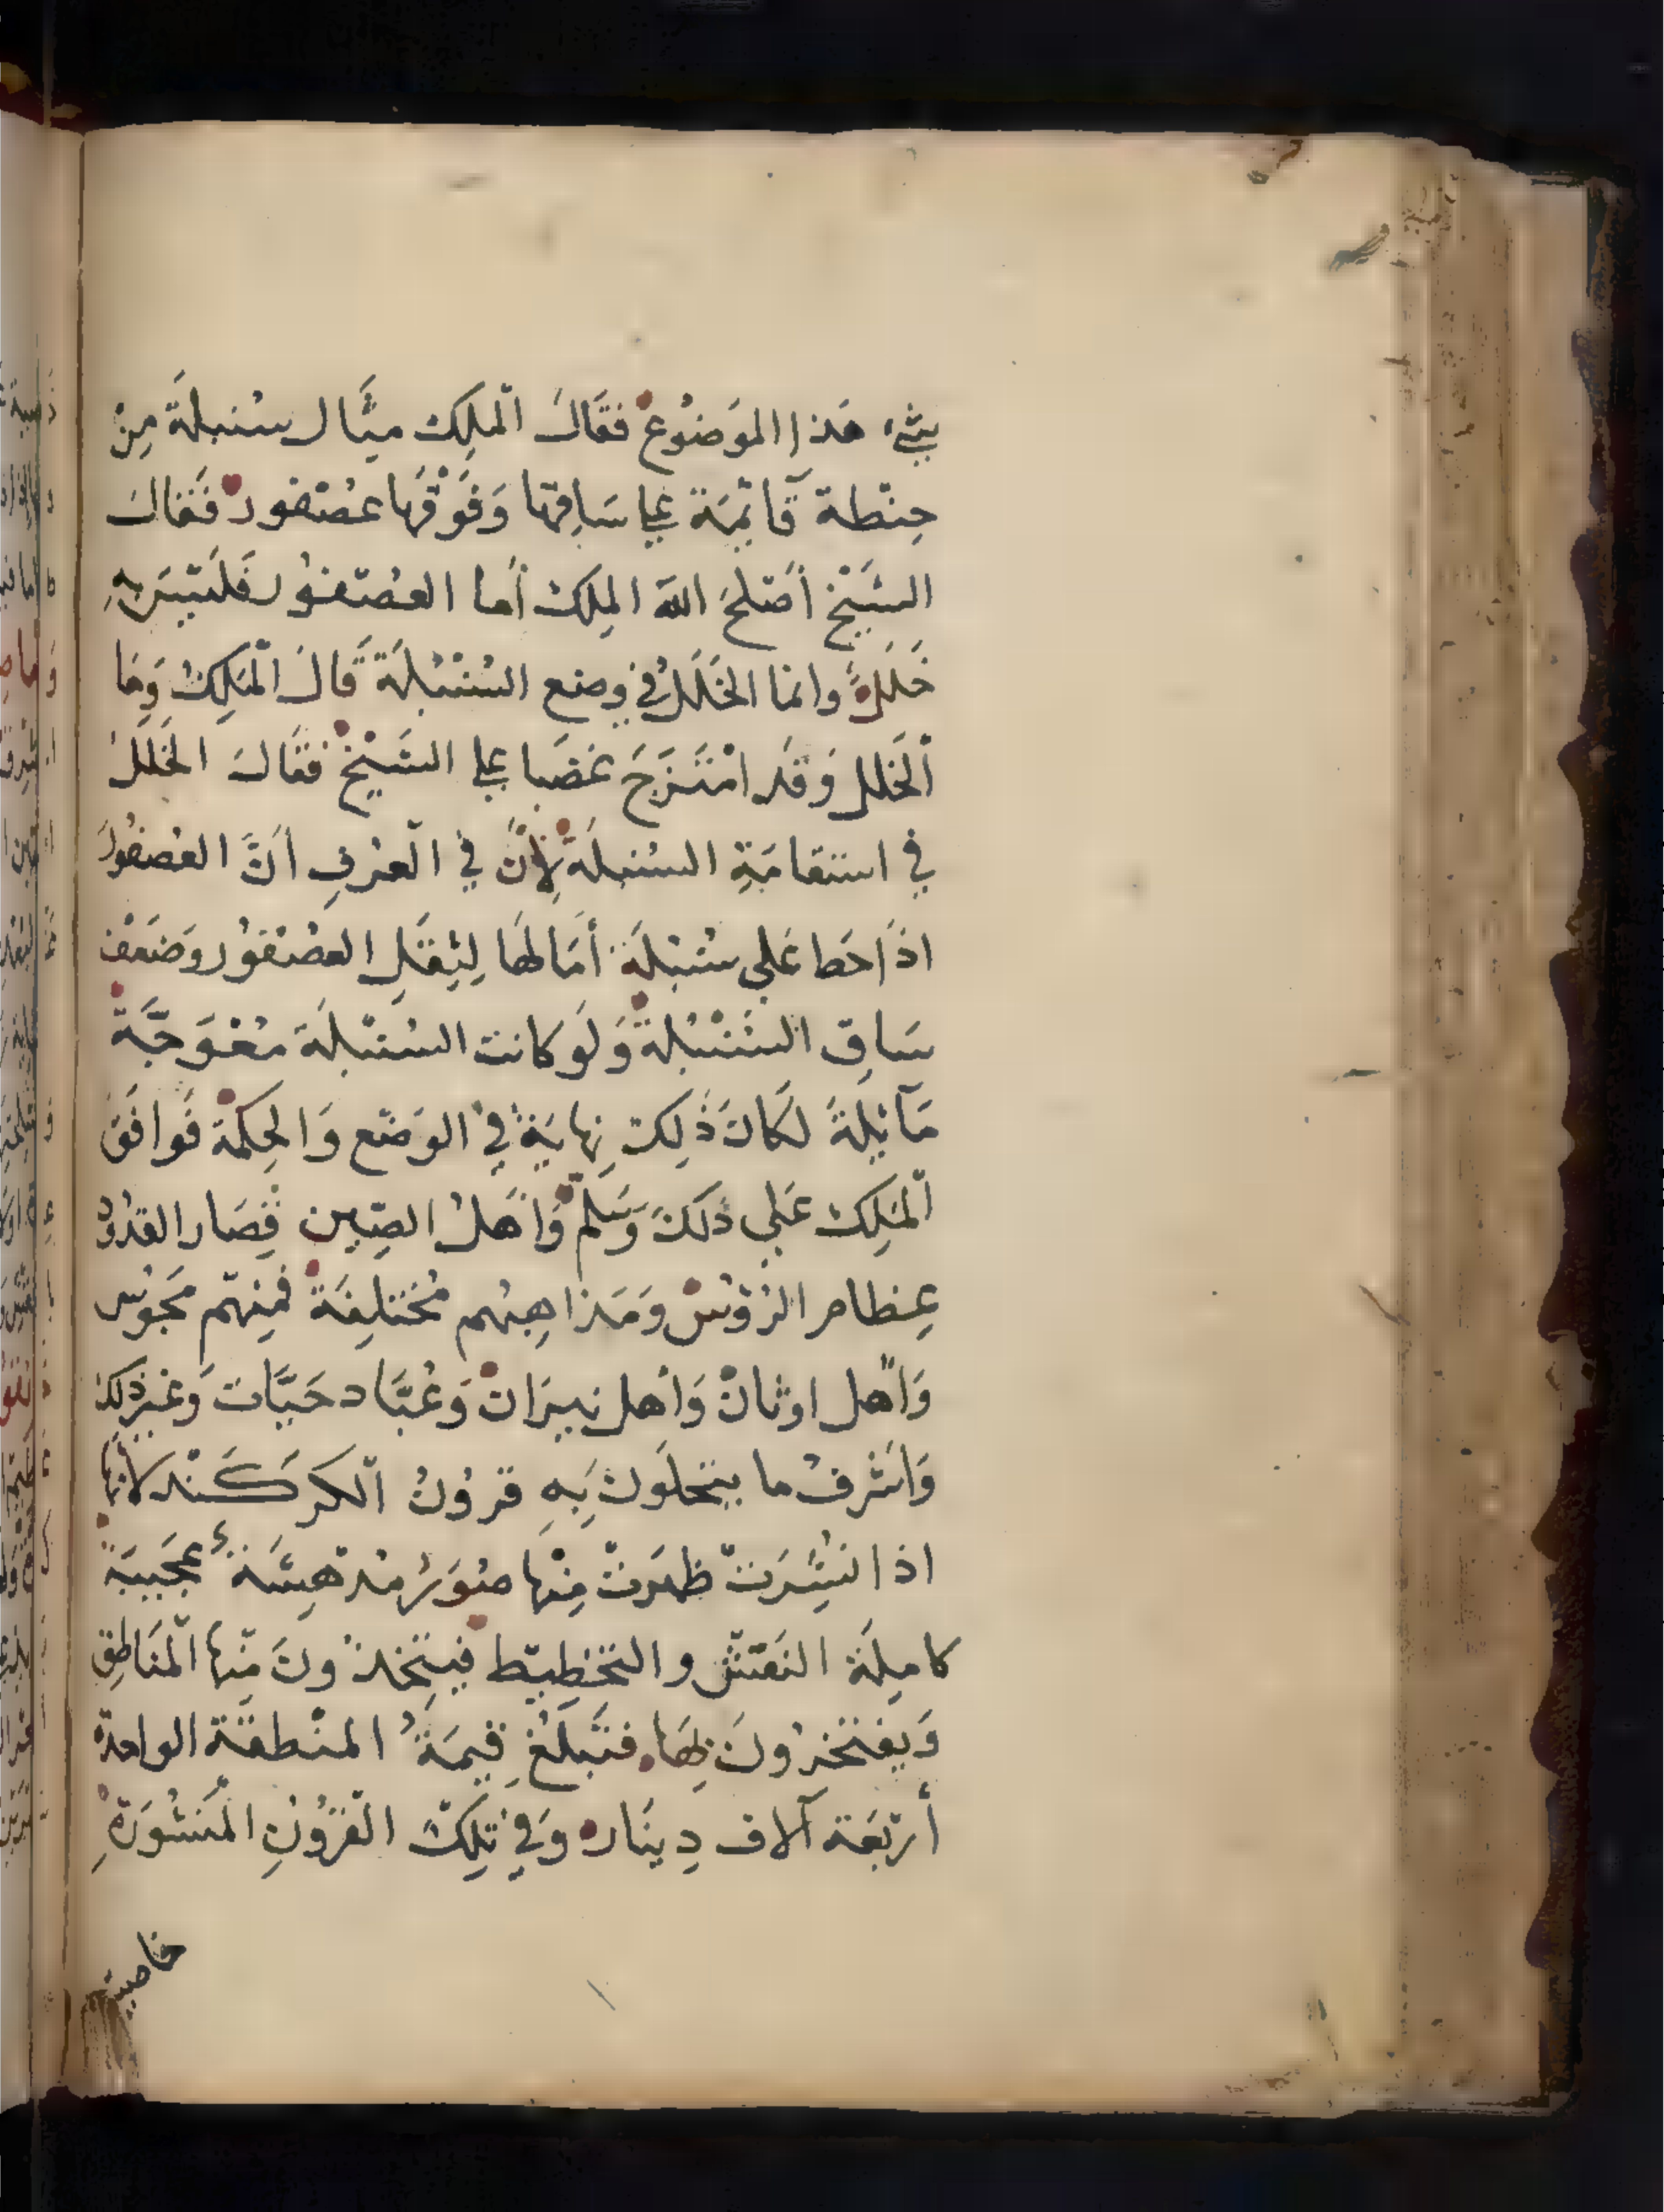 بشيء هذا الموَضُوع فقَالَ الْملِك مثَّال سنبلةَ مِنْ
حِنْطة قَآئِمَة على سَاقِهَا وَفَوْقَهَا عُصْفور فَقَالَ
الشَيْخ أصْلحَ اللهَ الملِك أما العُصْفوُر فَليْسَ بهِ
خَلَلٌ وانما الخَلَلُ في وضع السُنْبُلَة قَالَ الْمَلِكُ وَمَا
الْخَلل وَقَد امْتَزجَ غضَبا على الشَيْخ فقَالَ الخَلَلُ
في استقامَةِ السُنبلَة لِأنَّ في الْعُرْفِ أنَّ العُصفُورَ
اذَا حَط عَلى سُنْبُلَة أمَالهَا لِثِقَلِ العصْفوُر وَضعْف
سَاقِ السُنْبُلةَ وَلَو كانت السُنْبلَة مُعْوَجَّةً
مَآئِلةً لَكَانَ ذَلِكَ نِهَايَةً فِي الوَضْع وَالحِكمة فَوافَقَ
الْمَلِك عَلى ذَلكَ وَسَلم وَأهْلُ الصِّين قِصَار القدُود
عِظام الرُؤُسْ وَمَذاهِبُهم مُختلِفَةٌ فمِنْهم مَجوُس
وَأهْل اوثانْ وَأهل نِيرَانْ وَعُبَّاد حَيَّات وَغير ذلك
وَاشرفُ ما يتحلَونَ بِهِ قرُوُنُ الْكركَنْد لأنها
اذا نُشِرَتْ ظهَرتْ مِنْها صُورٌ مُدهِشَةٌ عَجَيبَةٌ
كامِلَة النَقْش والتخطِيط فيَتِّخذُونَ مِّنهَا الْمَنَاطِق
وَيفتخِرُونَ بِهَا فتَبلُغ قِيمَةُ المنْطقَة الواحدة
أرْبَعَة آلاف دِينَار وَفِي تِلكَ القرُوُنِ الْمَنْشُورَةِ
خاصية